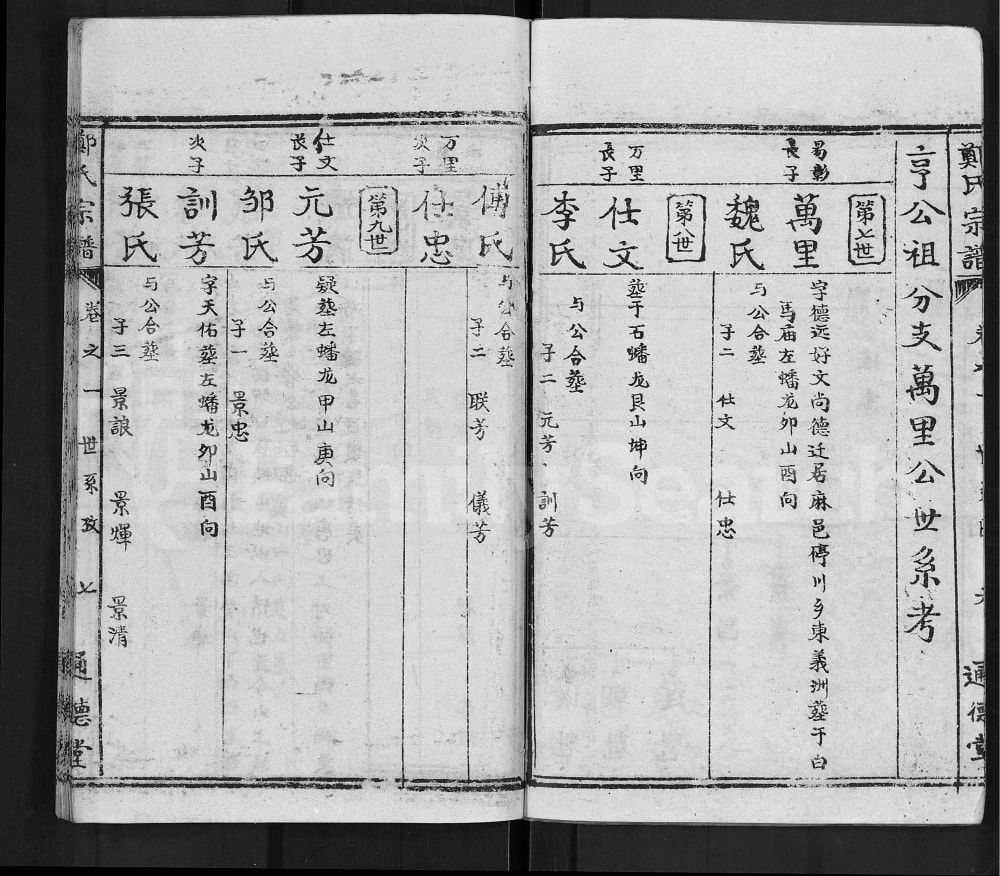 鄭氏宗譜
通德堂
亨公祖分支萬里公世系考
第七世
易彰
長子
萬里
字德远好文尚德迁居麻邑停川乡東義洲墓于白
馬庙左蟠龙卯山酉向
魏氏
与公合墓
子二 仕文 仕忠
第八世
万里
長子
仕文
墓于石蟠龙艮山坤向
李氏
与公合墓
子二 元芳 訓芳
傅氏
与公合墓
子二 联芳 儀芳
万里
次子
仕忠
第九世
仕文
長子
元芳
疑墓左蟠龙甲山庚向
邹氏
与公合墓
子一 景忠
次子
訓芳
字天佑墓左蟠龙卯山酉向
張氏
与公合墓
子三 景誏 景輝 景清
鄭氏宗譜 卷之一 世系攷 七 通德堂